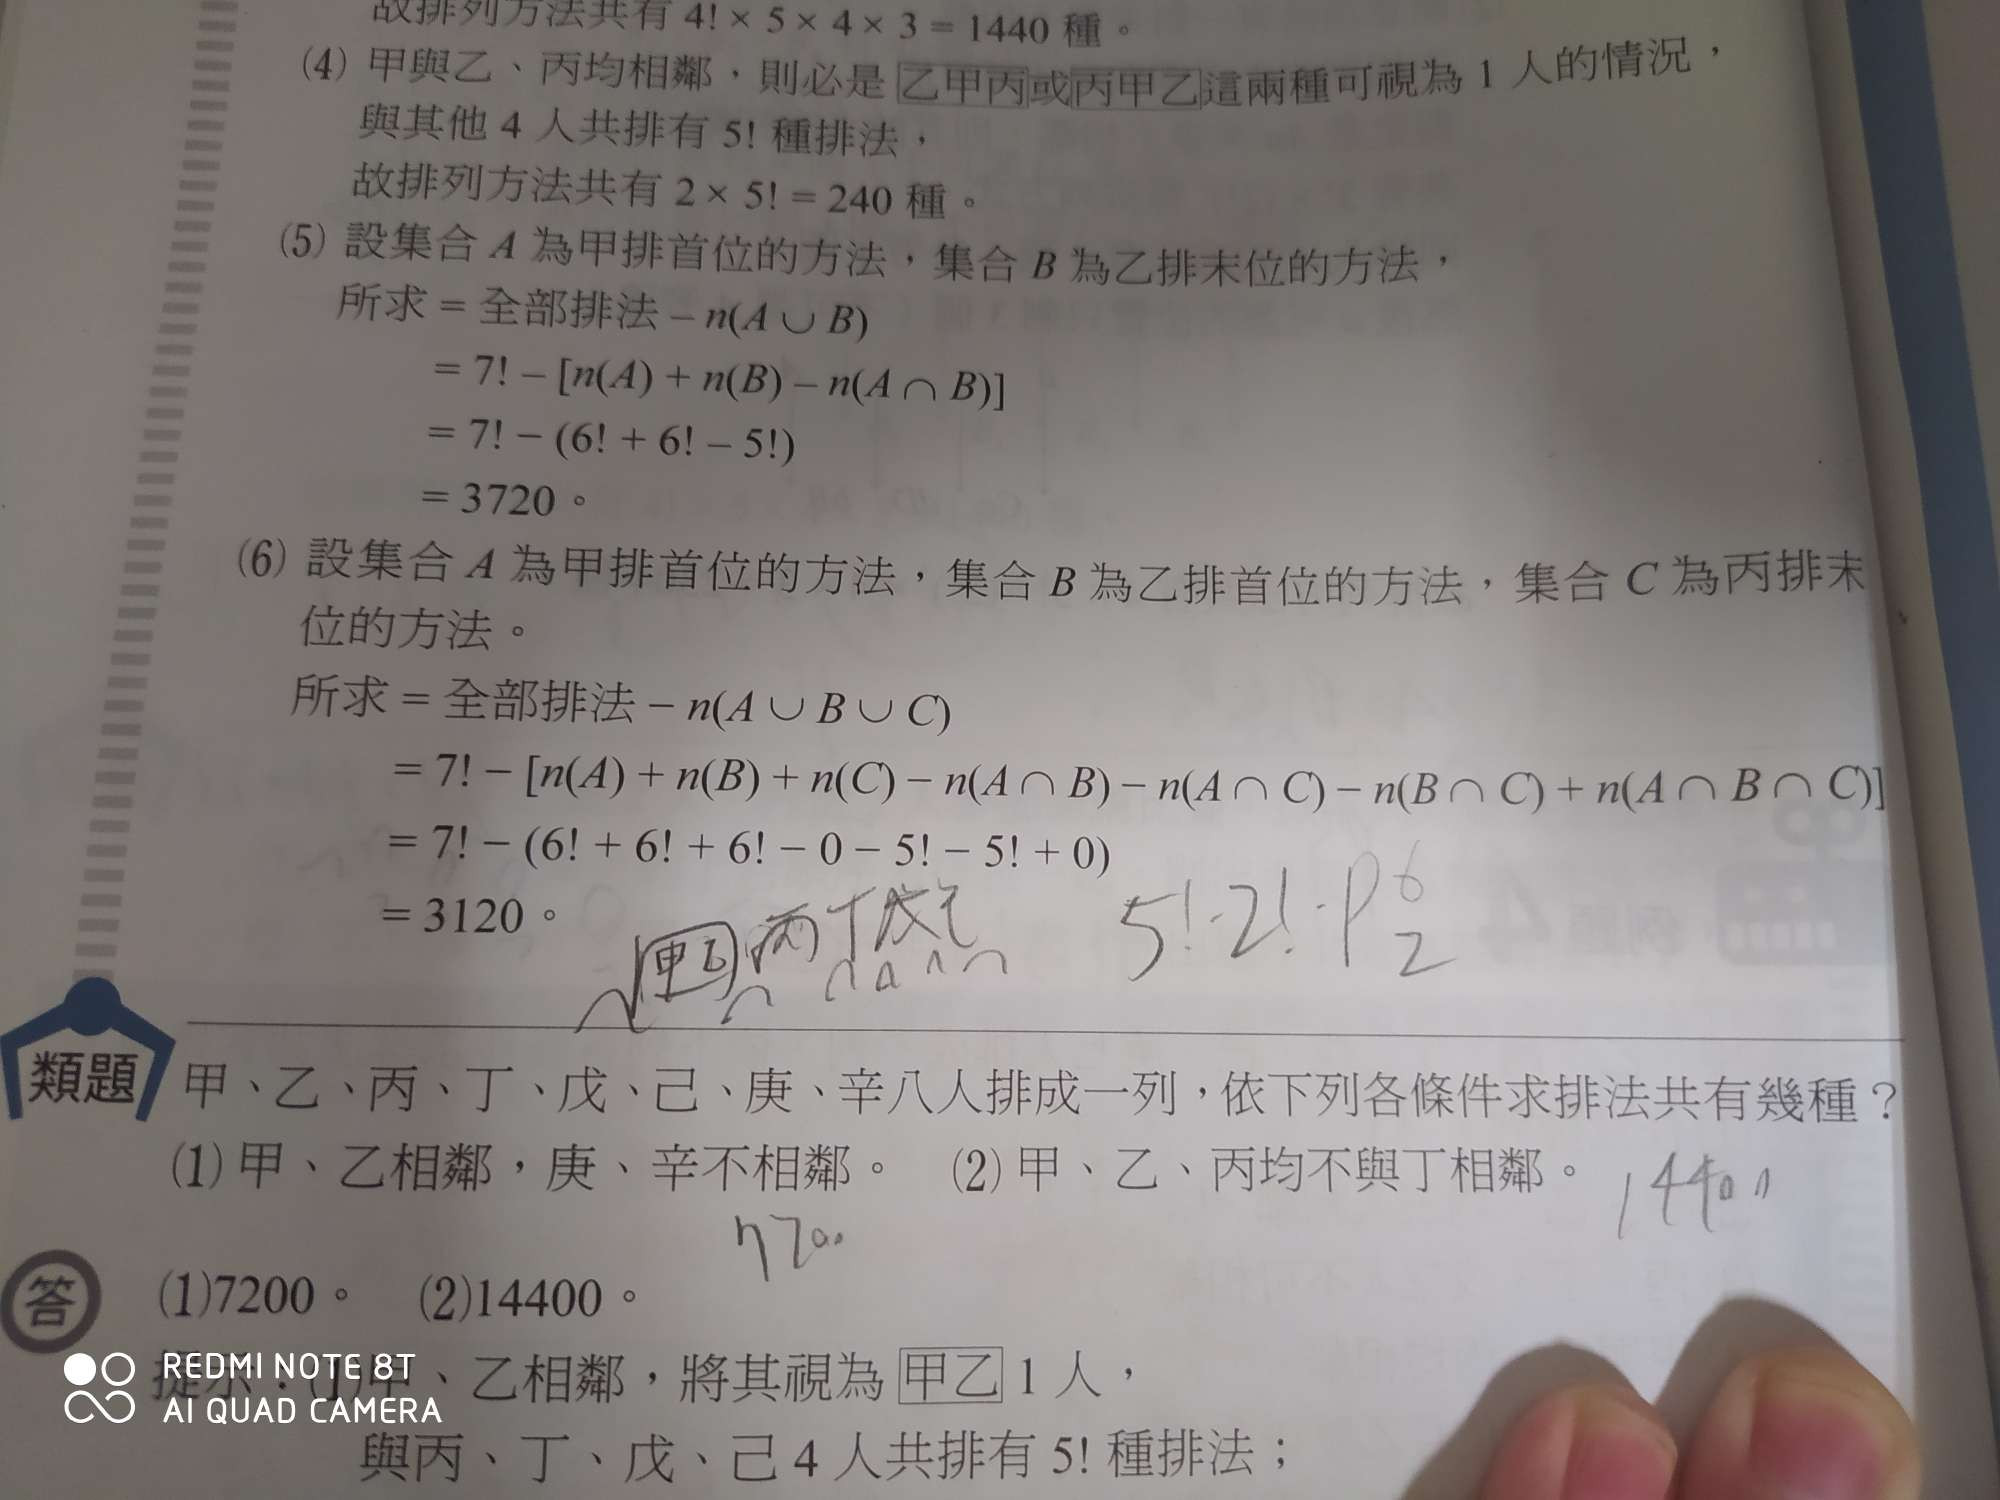 故排列方法共有 4! × 5 × 4 × 3 = 1440 種。
(4) 甲與乙、丙均相鄰，則必是乙甲丙或丙甲乙這兩種可視為 1 人的情況，
與其他 4 人共排有 5! 種排法，
故排列方法共有 2 × 5! = 240 種。
(5) 設集合 A 為甲排首位的方法，集合 B 為乙排末位的方法，
所求 = 全部排法 – n(A ∪ B)
= 7! – [n(A) + n(B) – n(A ∩ B)]
= 7! – (6! + 6! – 5!)
= 3720。
(6) 設集合 A 為甲排首位的方法，集合 B 為乙排首位的方法，集合 C 為丙排末
位的方法。
所求 = 全部排法 – n(A ∪ B ∪ C)
= 7! – [n(A) + n(B) + n(C) – n(A ∩ B) – n(A ∩ C) – n(B ∩ C) + n(A ∩ B ∩ C)]
= 7! – (6! + 6! + 6! – 0 – 5! – 5! + 0)
= 3120。
甲乙 丙丁戊己 5!·2!·P⁶₂
類題 甲、乙、丙、丁、戊、己、庚、辛八人排成一列，依下列各條件求排法共有幾種？
(1) 甲、乙相鄰，庚、辛不相鄰。 (2) 甲、乙、丙均不與丁相鄰。 14400
7200
答 (1)7200。 (2)14400。
提示：(1)甲、乙相鄰，將其視為 甲乙 1 人，
與丙、丁、戊、己 4 人共排有 5! 種排法；
REDMI NOTE 8T
AI QUAD CAMERA